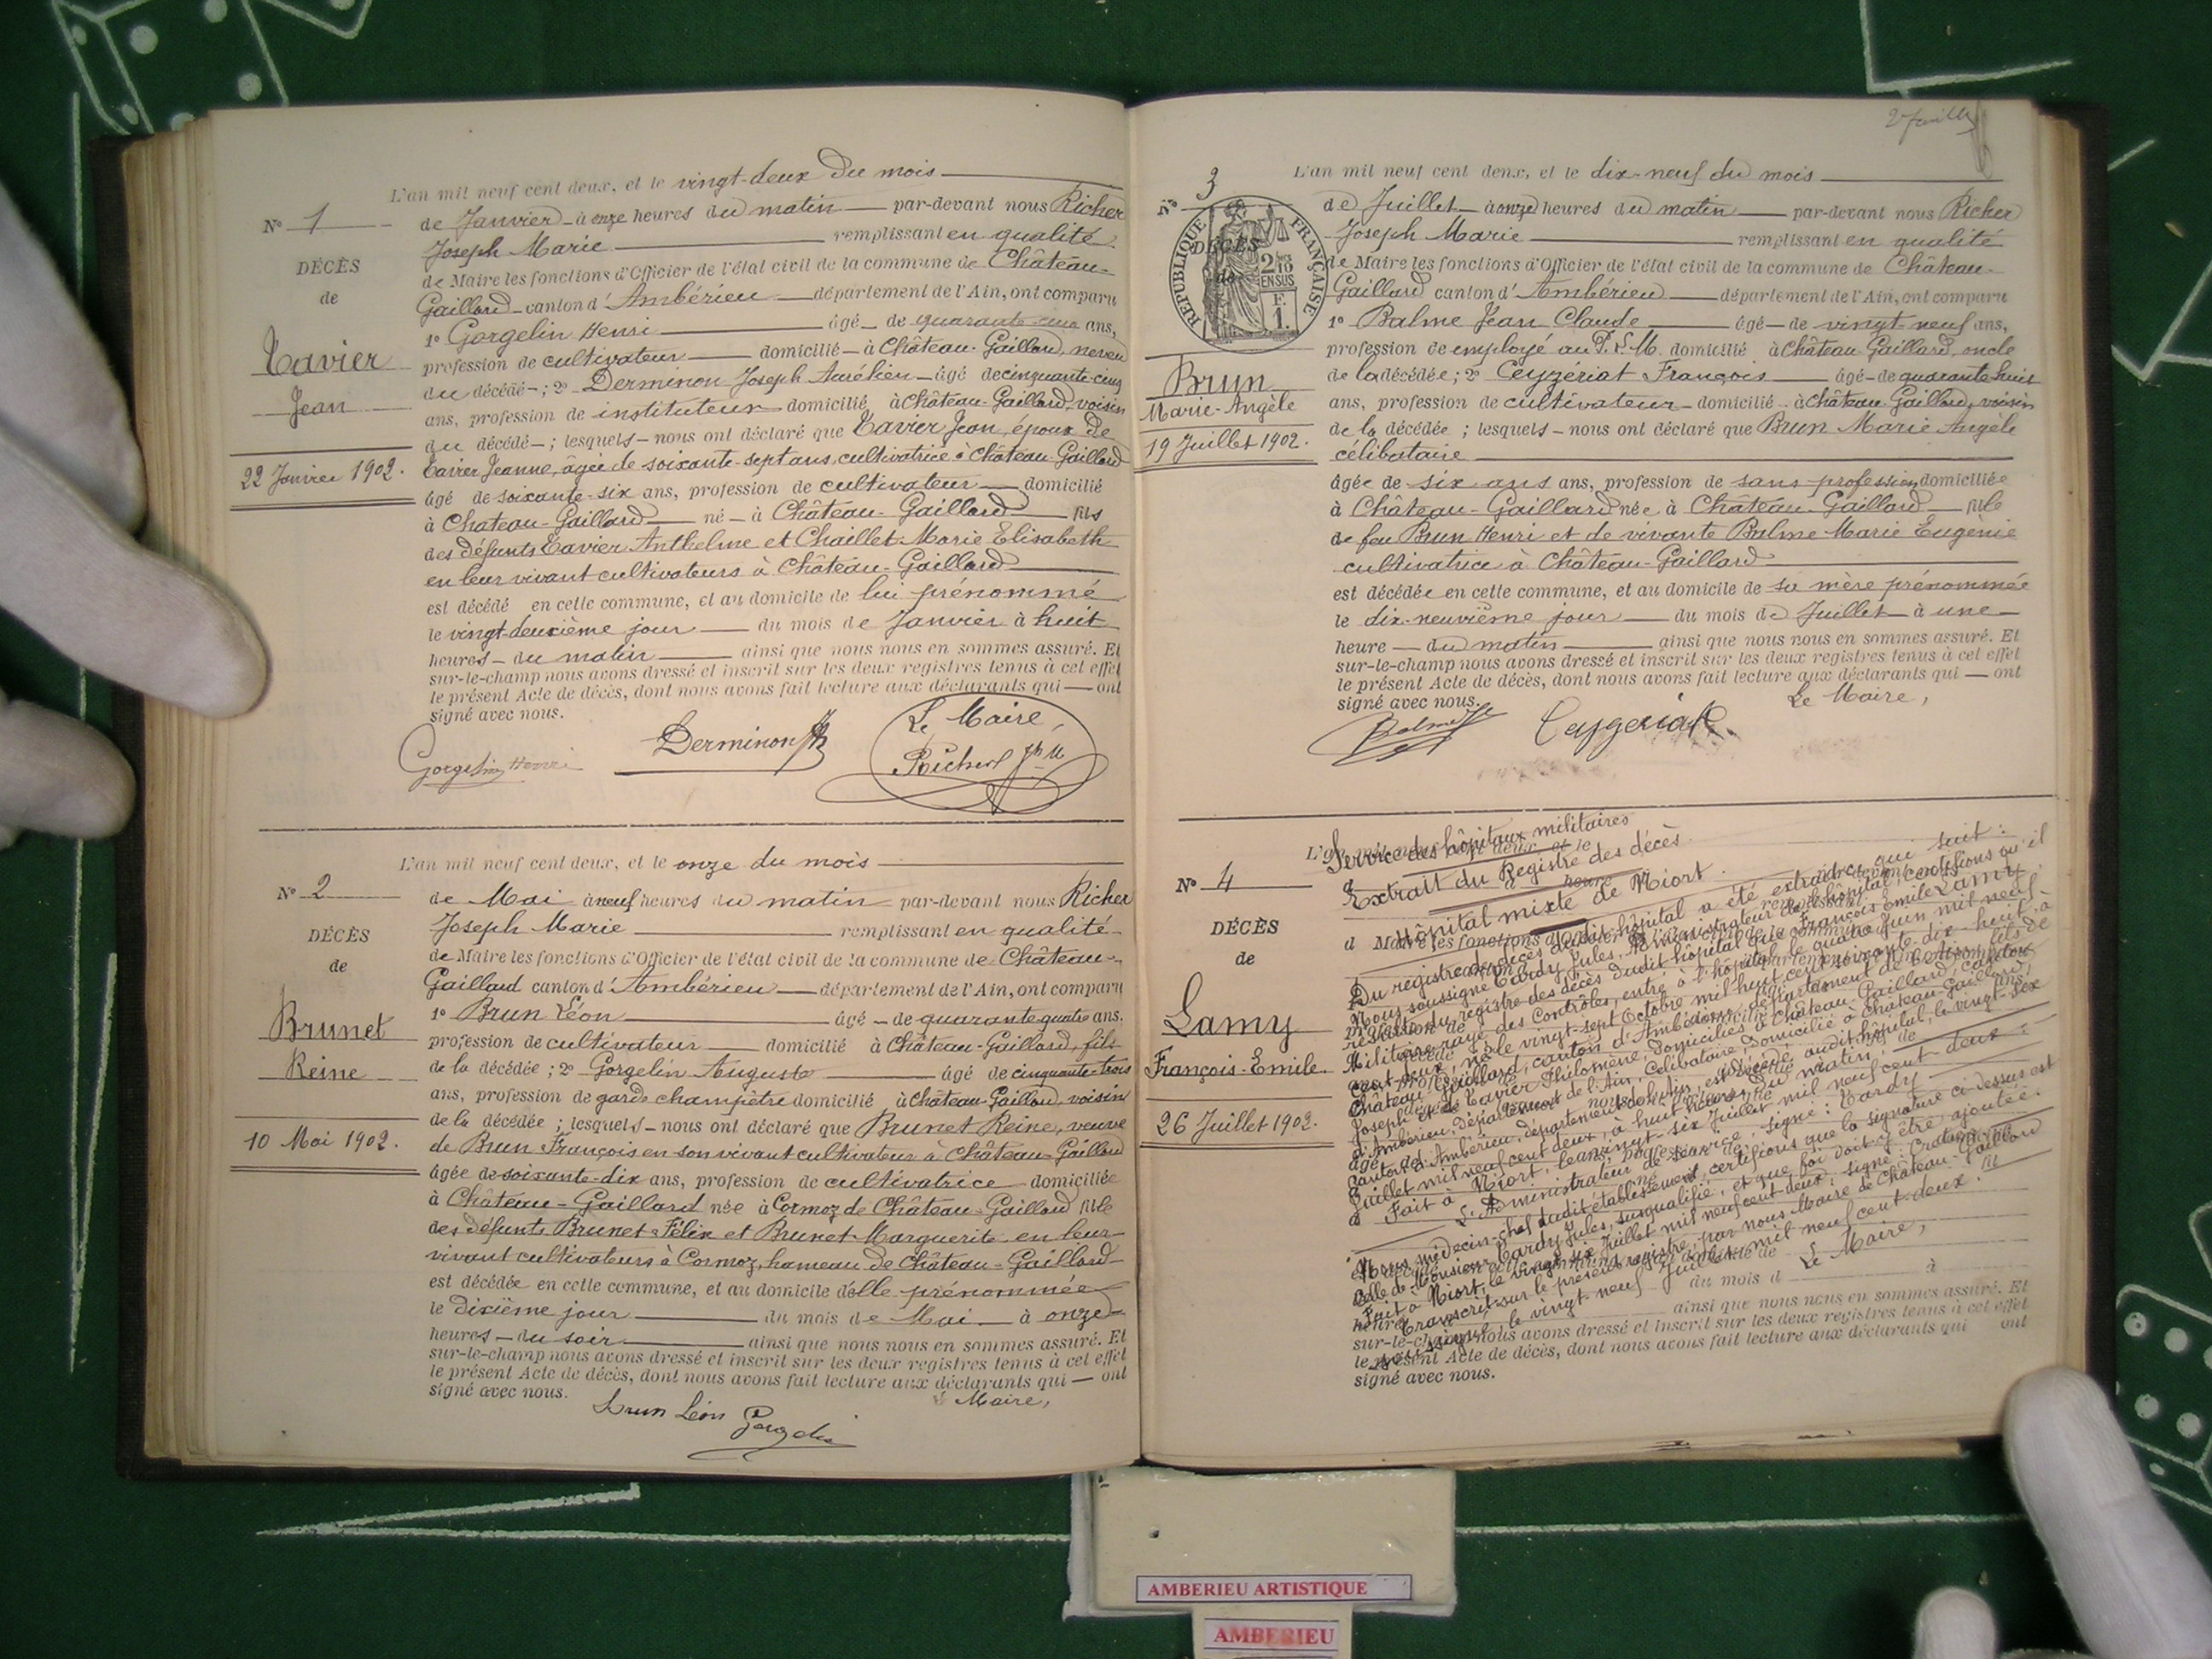 L'an mil neuf cent deux, et le vingt-deux du mois
N° 1 de Janvier à onze heures du matin par-devant nous Richer
Joseph Marie remplissant en qualité
DÉCÈS de Maire les fonctions d'Officier de l'état civil de la commune de Château-
de Gaillard canton d'Ambérieu département de l'Ain, ont comparu
1° Gorgelin Henri âgé de quarante ans,
Tavier profession de cultivateur domicilié à Château-Gaillard, neveu
du décédé ; 2° Derminon Joseph Aurélien âgé de cinquante-cinq
Jean ans, profession de instituteur domicilié à Château-Gaillard, voisin
du décédé ; lesquels nous ont déclaré que Tavier Jean, époux de
22 Janvier 1902. Tavier Jeanne, âgée de soixante-sept ans, cultivatrice à Château-Gaillard
âgé de soixante-six ans, profession de cultivateur domicilié
à Chateau-Gaillard né à Château-Gaillard fils
des défunts Tavier Anthelme et Chaillet Marie Elisabeth
en leur vivant cultivateurs à Château-Gaillard
est décédé en cette commune, et au domicile de lui prénommé
le vingt-deuxième jour du mois de Janvier à huit
heures du matin ainsi que nous nous en sommes assuré. Et
sur-le-champ nous avons dressé et inscrit sur les deux registres tenus à cet effet
le présent Acte de décès, dont nous avons fait lecture aux déclarants qui ont
signé avec nous.
Le Maire,
Gorgelin Henri Derminon Richer Jh M
L'an mil neuf cent deux, et le onze du mois
N° 2 de Mai à neuf heures du matin par-devant nous Richer
Joseph Marie remplissant en qualité
DÉCÈS de Maire les fonctions d'Officier de l'état civil de la commune de Château-
de Gaillard canton d'Ambérieu département de l'Ain, ont comparu
1° Brun Léon âgé de quarante quatre ans,
Brunet profession de cultivateur domicilié à Château-Gaillard, fils
Reine de la décédée ; 2° Gorgelin Auguste âgé de cinquante-trois
ans, profession de garde champêtre domicilié à Château-Gaillard, voisin
de la décédée ; lesquels nous ont déclaré que Brunet Reine, veuve
10 Mai 1902. de Brun François en son vivant cultivateur à Château-Gaillard
âgée de soixante-dix ans, profession de cultivatrice domiciliée
à Château-Gaillard née à Cormoz de Château-Gaillard fille
des défunts Brunet Félix et Brunet Marguerite en leur
vivant cultivateurs à Cormoz, hameau de Château-Gaillard
est décédée en cette commune, et au domicile d'elle prénommée
le dixième jour du mois de Mai à onze
heures du soir ainsi que nous nous en sommes assuré. Et
sur-le-champ nous avons dressé et inscrit sur les deux registres tenus à cet effet
le présent Acte de décès, dont nous avons fait lecture aux déclarants qui ont
signé avec nous.
Maire,
Brun Léon
L'an mil neuf cent deux, et le dix-neuf du mois
N° 3 de Juillet à onze heures du matin par-devant nous Richer
Joseph Marie remplissant en qualité
RÉPUBLIQUE FRANÇAISE
DÉCÈS de Maire les fonctions d'Officier de l'état civil de la commune de Château-
de Gaillard canton d'Ambérieu département de l'Ain, ont comparu
1° Balme Jean Claude âgé de vingt-neuf ans,
profession de employé au P.L.M. domicilié à Château-Gaillard, oncle
Brun de la décédée ; 2° Ceyzeriat François âgé de quarante huit
Marie-Angèle ans, profession de cultivateur domicilié à Château-Gaillard, voisin
de la décédée ; lesquels nous ont déclaré que Brun Marie Angèle
19 Juillet 1902. célibataire
âgée de six ans ans, profession de sans profession domiciliée
à Château-Gaillard née à Château-Gaillard fille
de feu Brun Henri et de vivante Balme Marie Eugénie
cultivatrice à Château-Gaillard
est décédée en cette commune, et au domicile de sa mère prénommée
le dix-neuvième jour du mois de Juillet à une
heure du matin ainsi que nous nous en sommes assuré. Et
sur-le-champ nous avons dressé et inscrit sur les deux registres tenus à cet effet
le présent Acte de décès, dont nous avons fait lecture aux déclarants qui ont
signé avec nous.
Le Maire,
Balme Ceyzeriat
Service des hôpitaux militaires
N° 4 Extrait du Registre des décès
Hôpital mixte de Niort
DÉCÈS
de
Lamy
François-Emile.
26 Juillet 1902.
Du registre des décès dudit hôpital a été extrait ce qui suit :
Nous soussigné Cardy Jules, Administrateur de l'hôpital, certifions qu'il
résulte du registre des décès dudit hôpital que François Emile Lamy
Militaire rayé des Contrôles, entré à l'hôpital le quatre Juin mil neuf
cent deux, né le vingt-sept Octobre mil huit cent soixante-dix-huit, à
Château-Gaillard, canton d'Ambérieu, département de l'Ain, fils de
Joseph et de Tavier Philomène, domiciliés à Château-Gaillard, canton
d'Ambérieu, département de l'Ain, célibataire, domicilié à Château-Gaillard,
canton d'Ambérieu, département de l'Ain, est décédé audit hôpital, le vingt-six
Juillet mil neuf cent deux, à huit heures du matin.
Fait à Niort, le vingt-six Juillet mil neuf cent deux :
L'Administrateur de service, signé : Cardy
Nous, médecin-chef dudit établissement, certifions que la signature ci-dessus est
celle de Monsieur Cardy Jules, susqualifié, et que foi doit y être ajoutée.
Fait à Niort, le vingt-six Juillet mil neuf cent deux, signé :
Transcrit sur le présent registre, par nous Maire de Château-Gaillard
soussigné, le vingt-neuf Juillet mil neuf cent deux.
Le Maire,
ainsi que nous nous en sommes assuré. Et
sur-le-champ nous avons dressé et inscrit sur les deux registres tenus à cet effet
le présent Acte de décès, dont nous avons fait lecture aux déclarants qui ont
signé avec nous.
AMBERIEU ARTISTIQUE
AMBERIEU